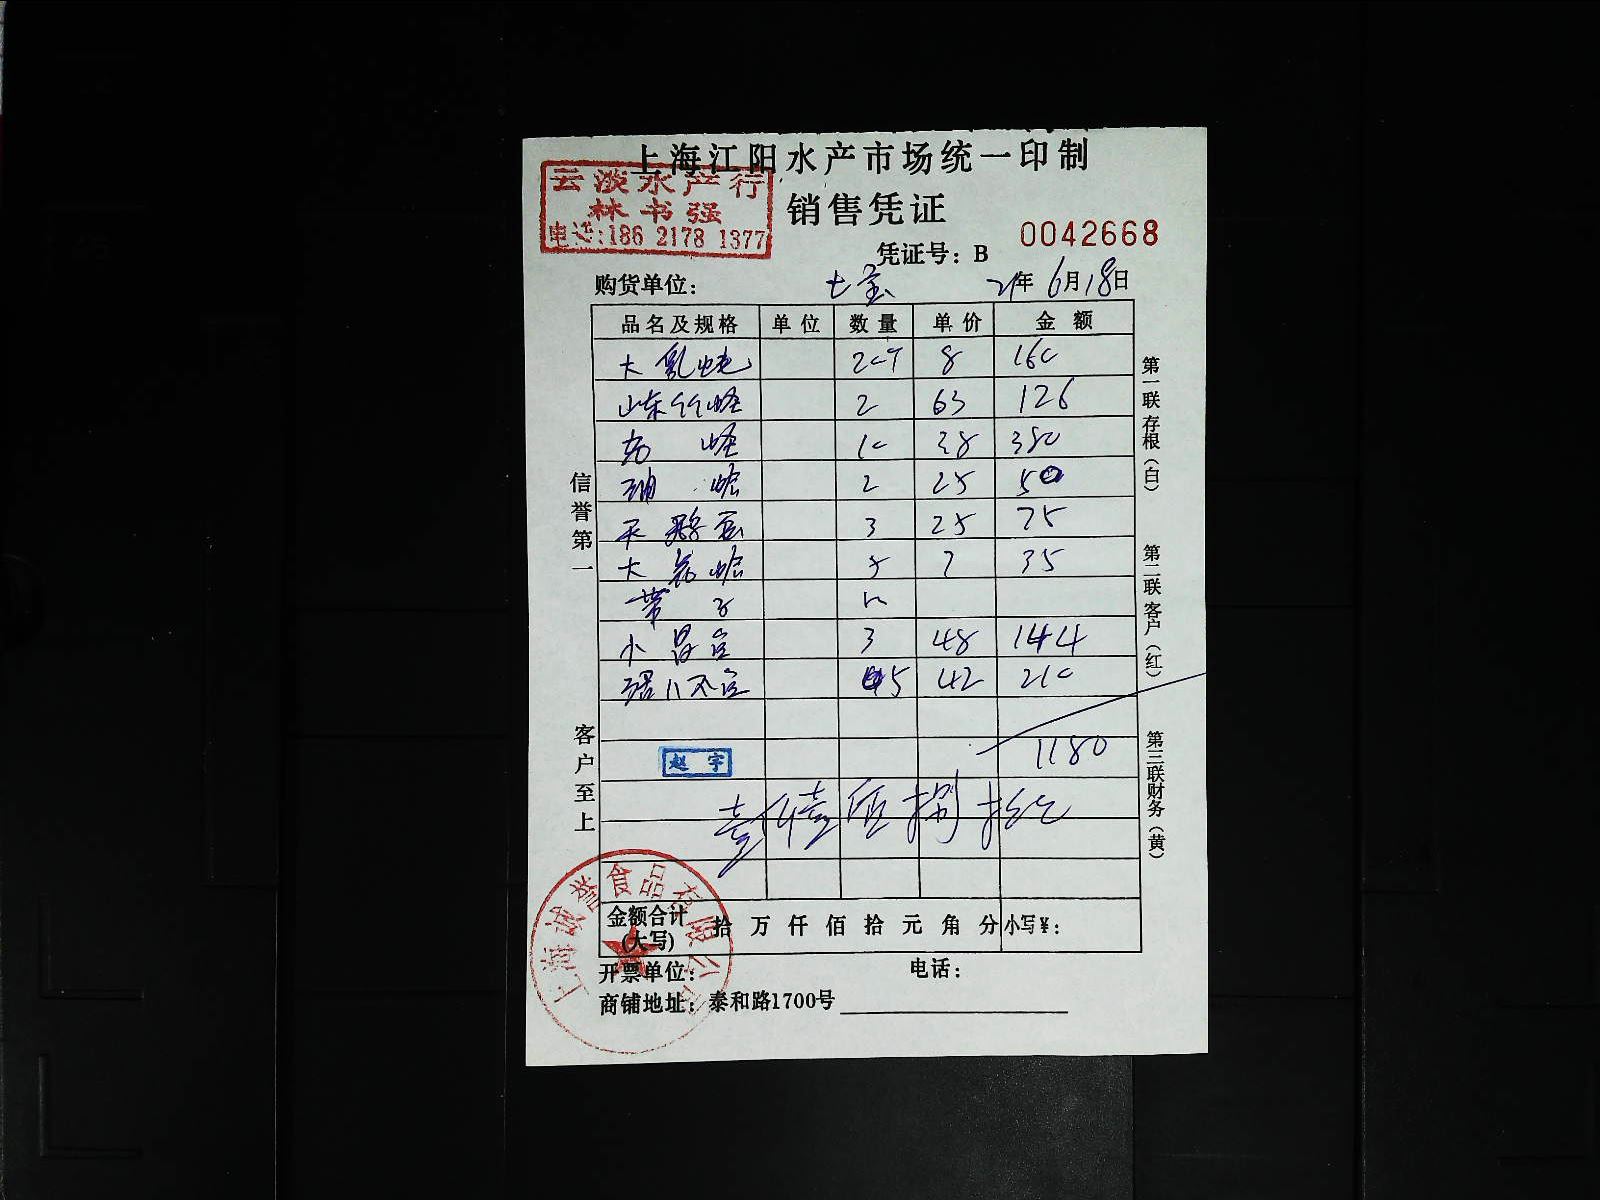 上海江阳水产市场统一印制
云淡水产行
林书强
电话:186 2178 1377
销售凭证
0042668
凭证号：B
购货单位： 七宝 21年6月18日
品名及规格 单位 数量 单价 金额
大 8 160
山东竹蛏 2 63 126
蛏 10 38 380
蛤 2 25 50
天鹅蛋 3 25 75
大花蛤 5 7 35
带子
小 3 48 144
5 42 210
1180
赵宇
壹仟壹佰捌拾元
金额合计(大写) 拾万仟佰拾元角分 小写¥：
开票单位： 电话：
商铺地址：泰和路1700号
上海诚誉食品有限公司
信誉第一
客户至上
第一联存根（白）
第二联客户（红）
第三联财务（黄）